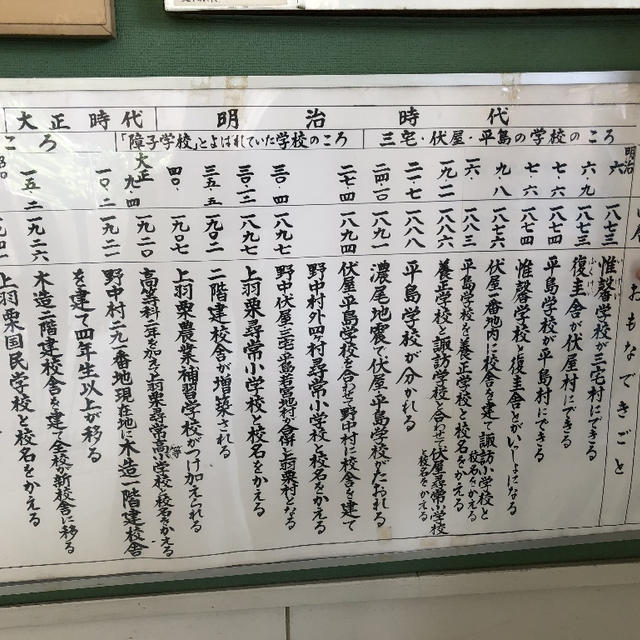 おもなできごと
明治時代
大正時代
三宅・伏屋・平島の学校のころ
「障子学校」とよばれていた学校のころ
ころ
明治六 一八七三 惟馨学校が三宅村にできる
六・九 一八七三 復圭舎が伏屋村にできる
七・六 一八七四 平島学校が平島村にできる
七・六 惟馨学校と復圭舎とがいっしょになる
九・八 一八七六 伏屋二番地内に校舎を建て諏訪小学校と校名をかえる
一六・ 一八八三 平島学校を養正学校と校名をかえる
一九・二 養正学校と諏訪学校を合わせて伏屋尋常小学校と校名をかえる
二一・七 一八八八 平島学校が分かれる
二四・一〇 一八九一 濃尾地震で伏屋、平島学校がたおれる
二七・四 一八九四 伏屋平島学校を合わせて野中に校舎を建て
野中村外四ヶ村尋常小学校と校名をかえる
三〇・四 一八九七 野中伏屋三宅平島若宮地村が合併上羽栗村となる
三〇・一二 一八九七 上羽栗尋常小学校と校名をかえる
三五・五 一九〇二 二階校舎が増築される
四〇・ 一九〇七 上羽栗農業補習学校がつけ加えられる
大正九・四 一九二〇 高等科二年を加えて上羽栗尋常高等小学校と校名をかえる
一〇・二 一九二一 野中村二九一番地現在地に木造一階建校舎
を建て四年生以上が移る
一五・二 一九二六 木造二階建校舎を建て全校が新校舎に移る
上羽栗国民学校と校名をかえる